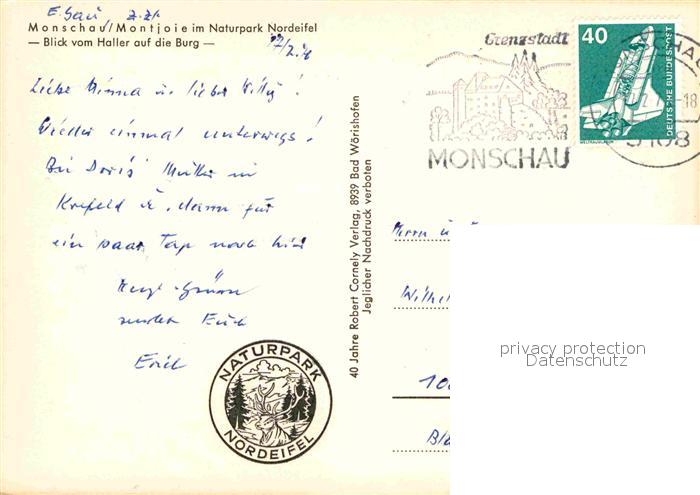 E. Gau z. Zt.
Monschau/Montjoie im Naturpark Nordeifel
— Blick vom Haller auf die Burg —
Liebe Minna u. lieber Willy!
Wieder einmal unterwegs!
Bei Doris' Mutter in
Krefeld u. dann für
ein paar Tage noch hier
Herzl. Grüsse
sendet Euch
Erich
NATURPARK
NORDEIFEL
40 Jahre Robert Cornely Verlag, 8939 Bad Wörishofen
Jeglicher Nachdruck verboten
Grenzstadt
MONSCHAU
40
DEUTSCHE BUNDESPOST
WELTRAUMLABOR
5108
Herrn u.
Wilhel
100
privacy protection
Datenschutz